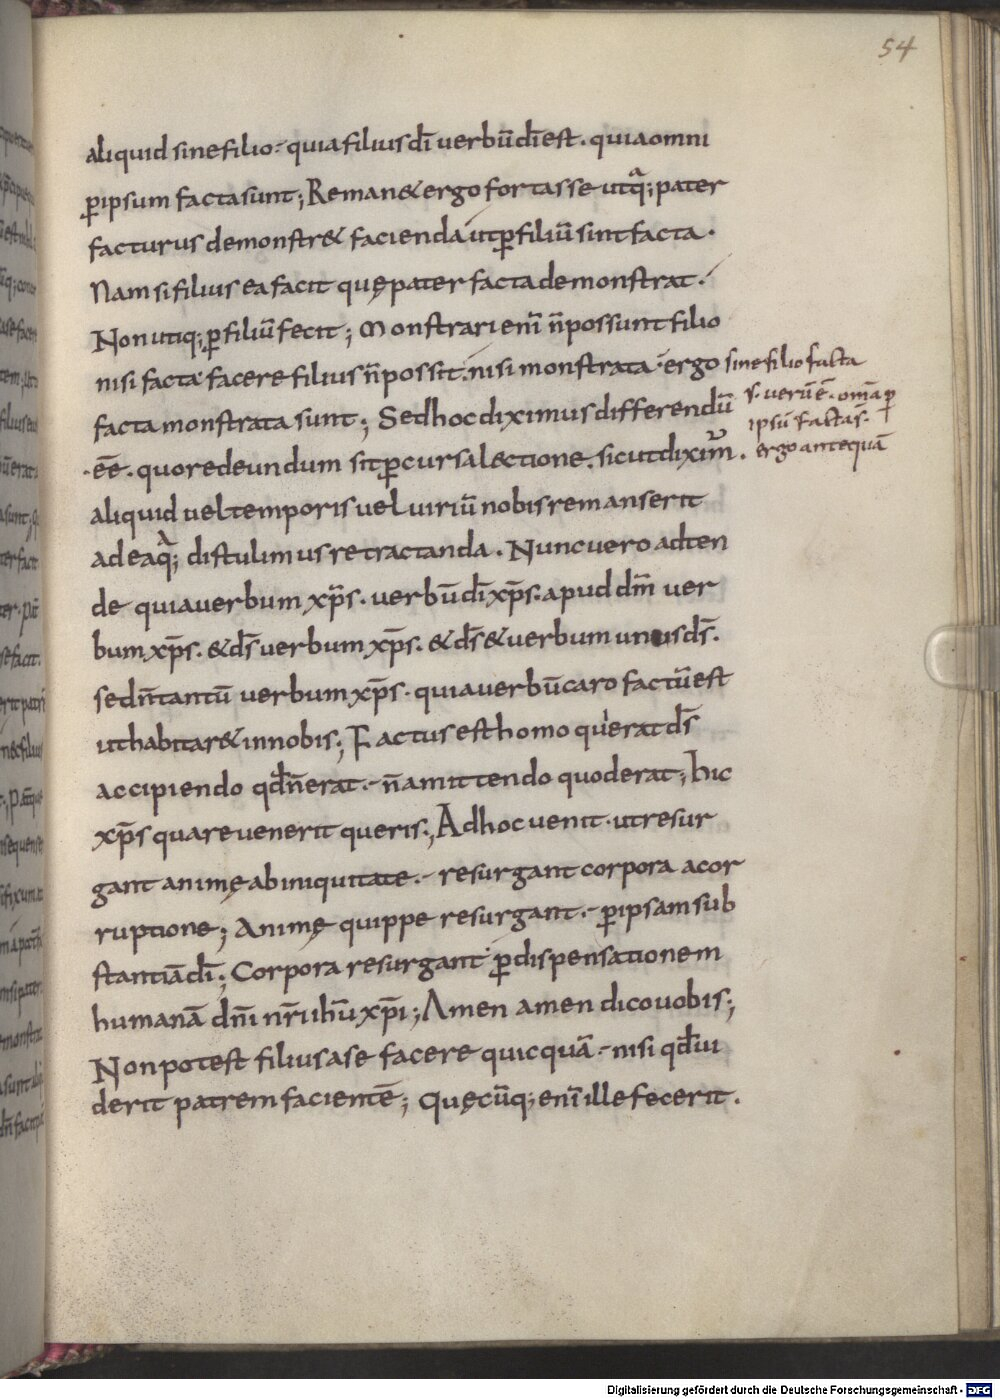 54
aliquid sine filio· quia filius dī verbū dī est· quia omni
ꝑ ipsum facta sunt; Reman& ergo fortasse utq;· pater
facturus demonstr& facienda ut ꝑ filiū sint facta·
Nam si filius ea facit quę pater facta demonstrat·
Non utiq; ꝑ filiū fecit; Monstrari enī n̄ possunt filio
nisi facta· facere filius n̄ possit· nisi monstrata· ergo sine filio facta
facta monstrata sunt; Sed hoc diximus differendū
s· verū ē· omīa ꝑ
ipsū facta s̄·
·eē· quo redeundum sit ꝑcursa lectione· sicut diximꝰ· ergo antequā
aliquid vel temporis vel viriū nobis remanserit
ad eaq; distulimus retractanda· Nunc vero adten
de quia verbum xp̄s· verbū dī xp̄s· apud dm̄ ver
bum xp̄s· & ds̄ verbum xp̄s· & ds̄ & verbum unus ds̄·
sed n̄ tantū verbum xp̄s· quia verbū caro factū est
ut habitar& in nobis; Factus est homo qui erat ds̄
accipiendo qd̄ n̄ erat· n̄ amittendo quod erat; hic
xp̄s quare venerit queris; Ad hoc venit· ut resur
gant animę ab iniquitate· resurgant corpora a cor
ruptione; Animę quippe resurgant· ꝑ ipsam sub
stantiā dī; Corpora resurgant ꝑ dispensationem
humanā dn̄i nr̄i ihū xp̄i; Amen amen dico vobis;
Non potest filius a se facere quicquā· nisi qd̄ vi
derit patrem facientē; Quęcūq; enī ille fecerit·
Digitalisierung gefördert durch die Deutsche Forschungsgemeinschaft - DFG